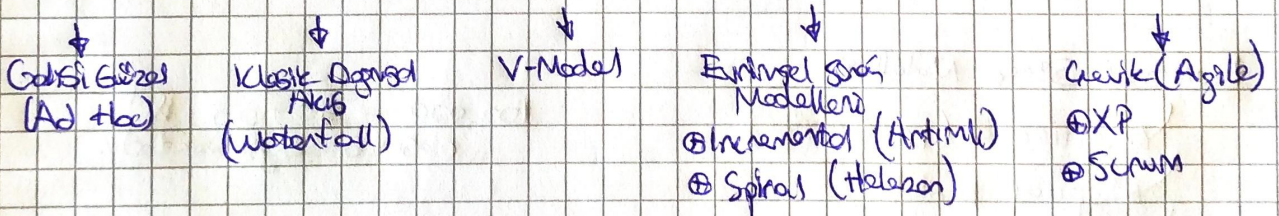 Gelişi Güzel
(Ad Hoc)
Klasik Doğrusal
Akış
(Waterfall)
V-Model
Evrimsel Süreç
Modelleri
⊕Incremental (Artımlı)
⊕ Spiral (Helezon)
Çevik (Agile)
⊕XP
⊕Scrum